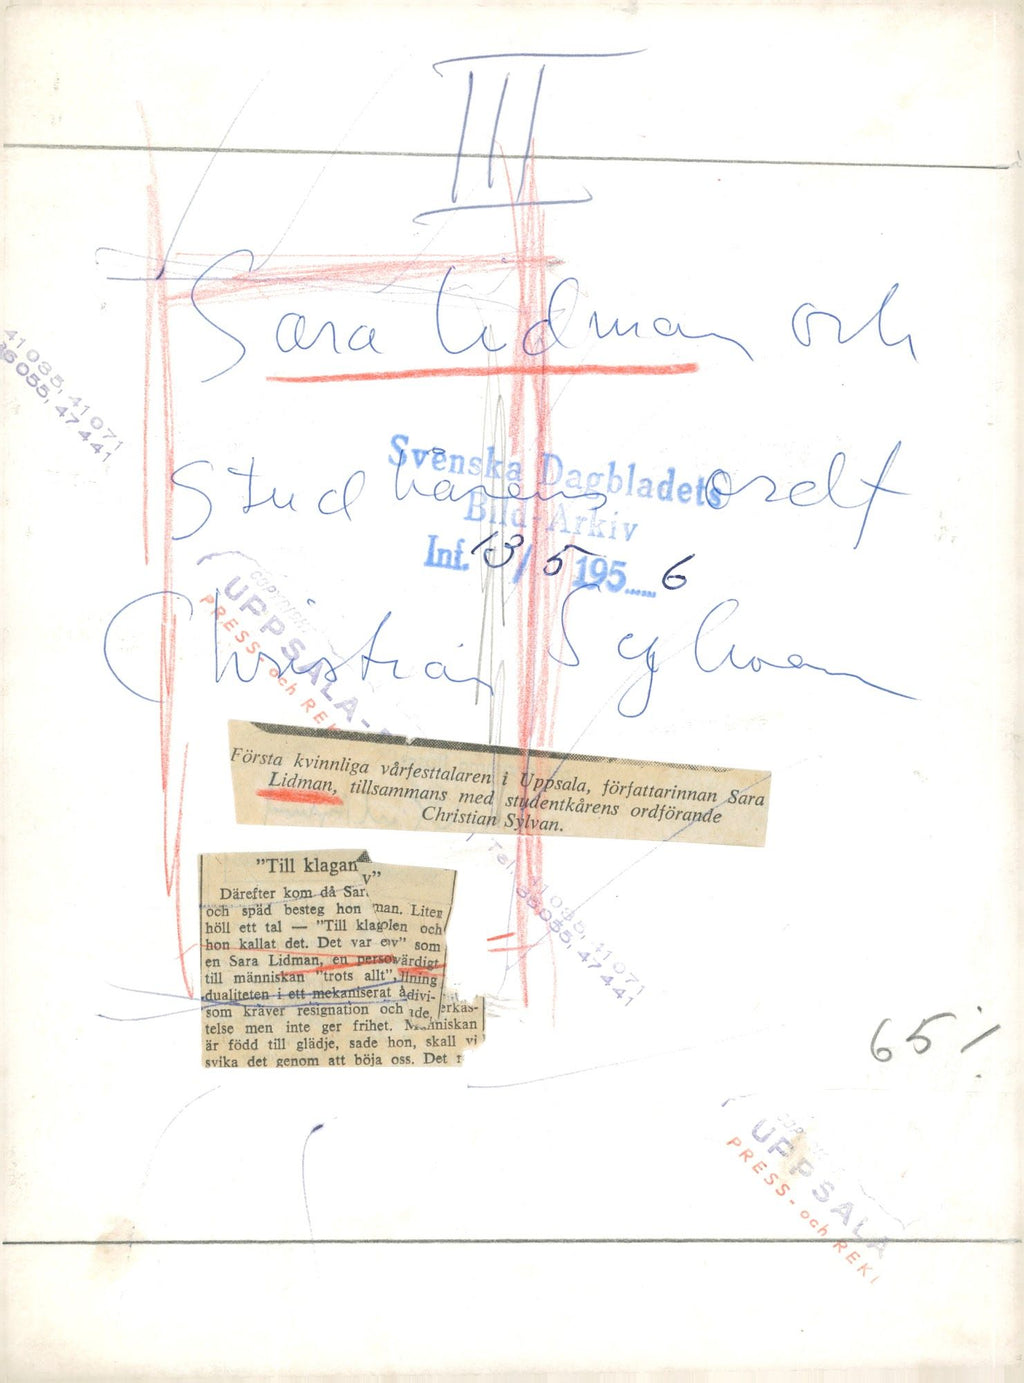 III
Sara Lidman och
41035, 41071
36055, 47441
Svenska Dagbladets
Stud kårens ordf
Bild-Arkiv
Inf. 13/5 1956
COPYRIGHT
UPPSALA-
PRESS- och REK
Christian Sylvan
Första kvinnliga vårfesttalaren i Uppsala, författarinnan Sara
Lidman, tillsammans med studentkårens ordförande
Christian Sylvan.
Tel. 41035, 41071
36055, 47441
"Till klagan
v"
Därefter kom då Sar
och späd besteg hon man. Liten
höll ett tal — "Till klag olen och
hon kallat det. Det var e v" som
en Sara Lidman, en perso värdigt
till människan "trots allt", llning
dualiteten i ett mekaniserat å divi-
som kräver resignation och ide, erkas-
telse men inte ger frihet. Människan
är född till glädje, sade hon, skall vi
svika det genom att böja oss. Det
65 %
UPPSALA
PRESS- och REK